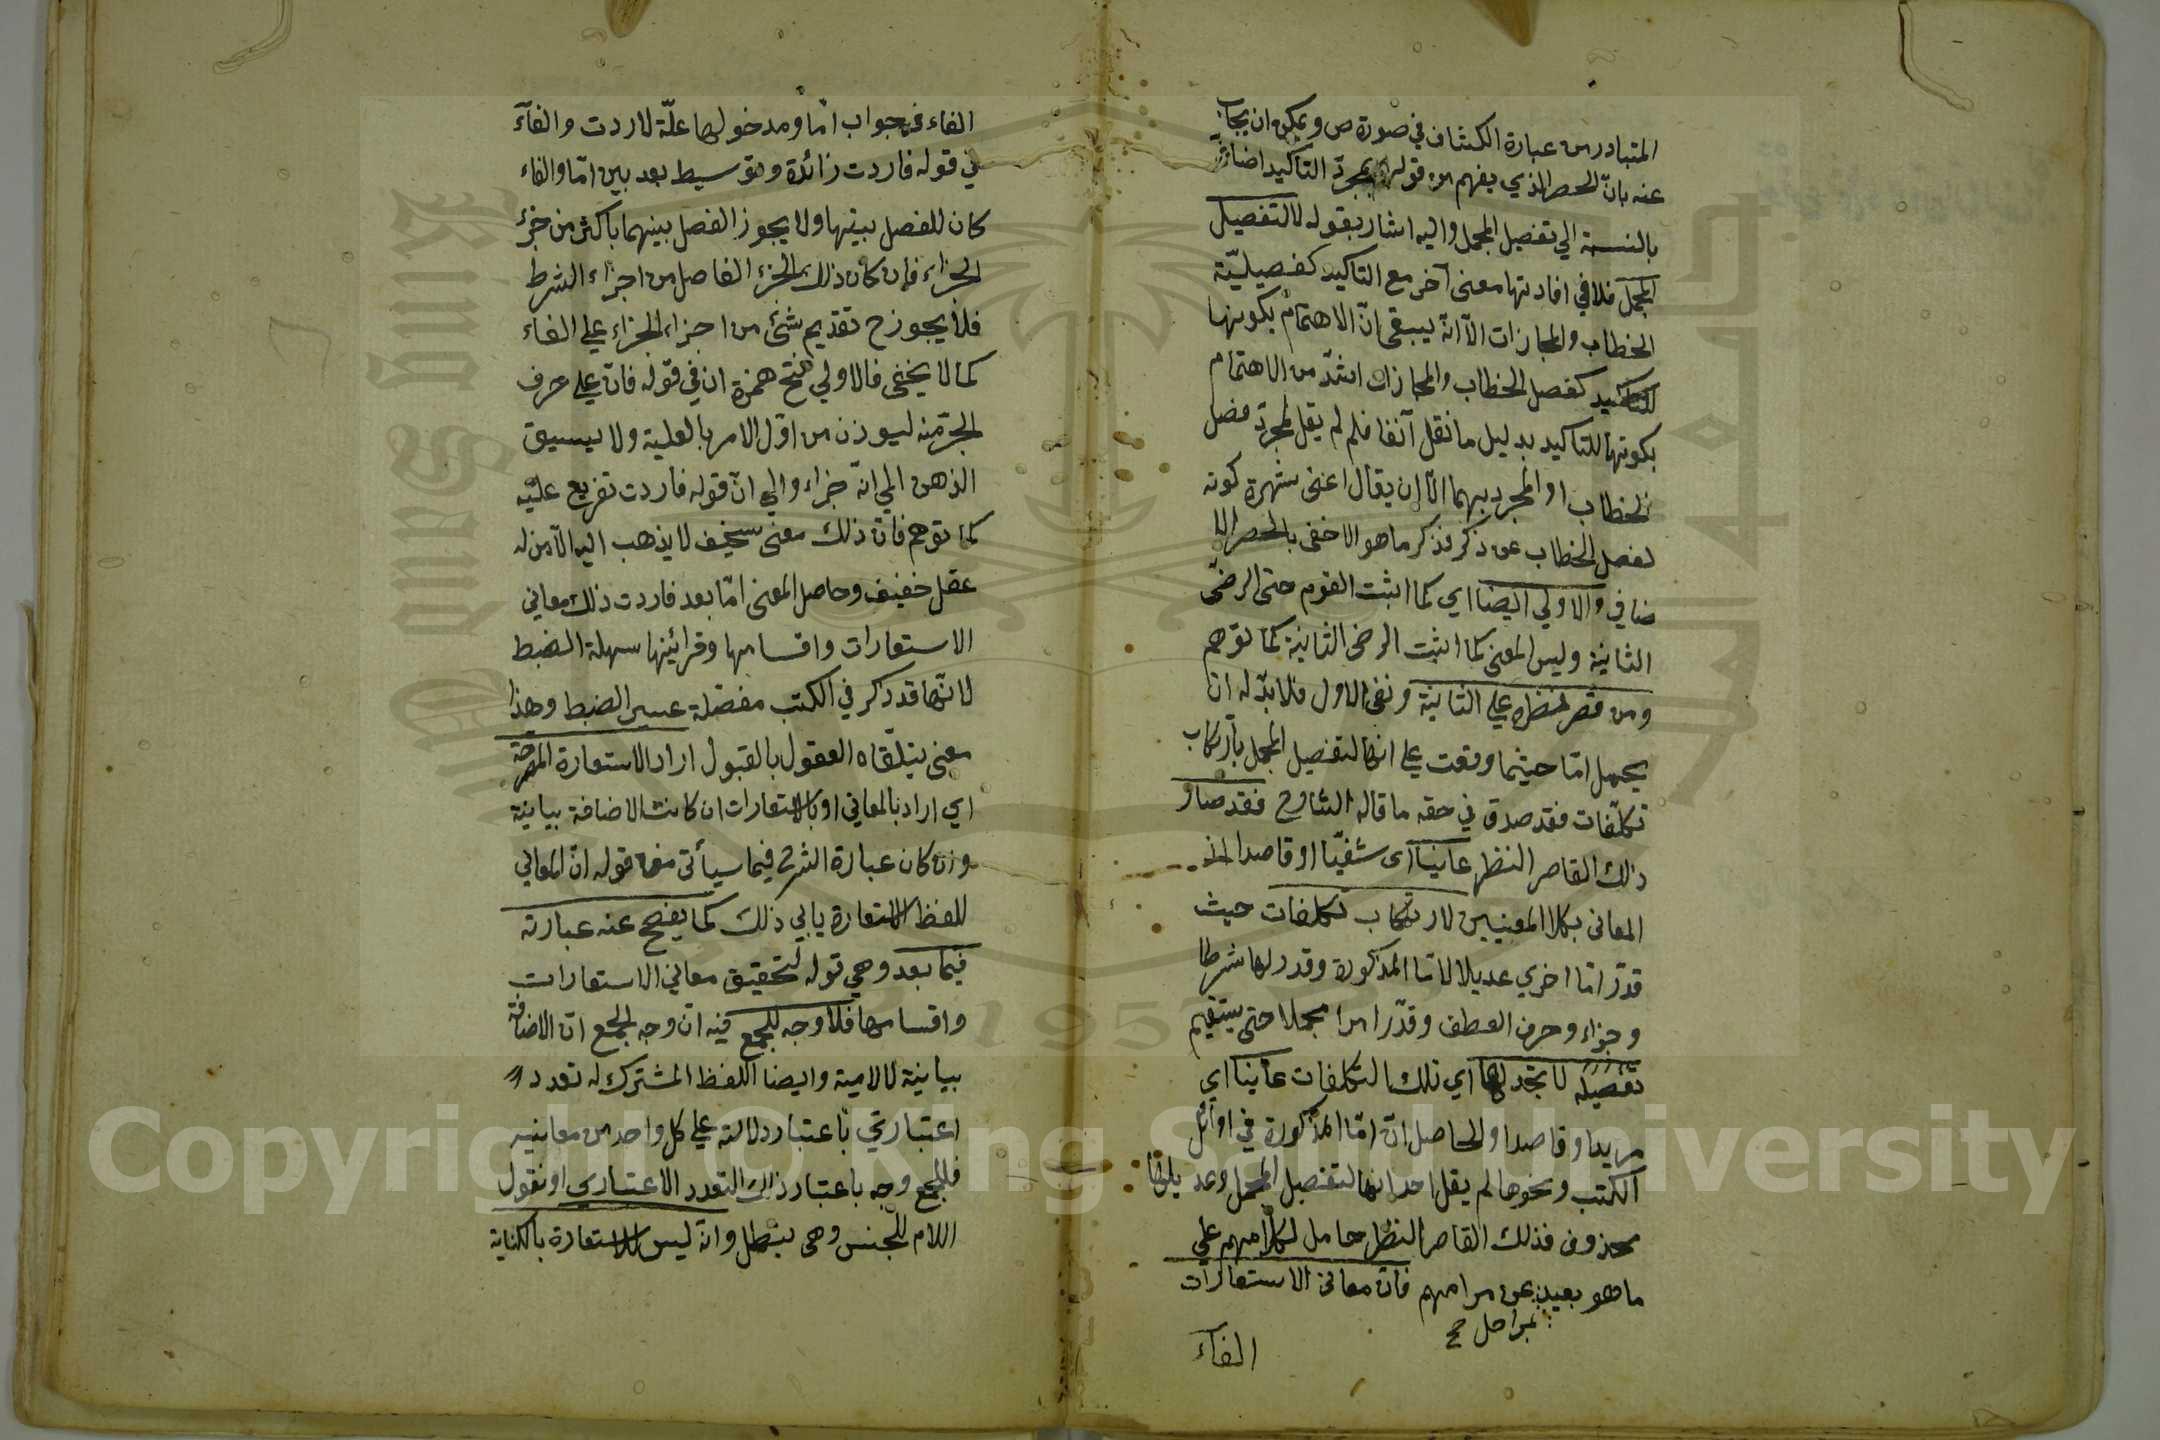 المتبادر من عبارة الكشاف في صورة ص ويمكن ان يجاب
عنه بانّ الحصر الذي يفهم من قوله لمجرّد التاكيد اضافيّ
بالنسبة الي تفصيل المجمل واليه اشار بقوله لا لتفصيل
المجمل فلا في افادتها معنى آخر مع التاكيد كفصيليّة
الخطاب والمجازات الّا انّه يبقى انّ الاهتمام بكونها
للتاكيد كفصل الخطاب والمجازات اشدّ من الاهتمام
بكونها للتاكيد بدليل ما نقل آنفا فلم لم يقل لمجرّد فصل
الخطاب او المجرد بهما الّا ان يقال اغنى شهرة كونه
لفصل الخطاب عن ذكر فذكر ما هو الاخفى بالحصر الا
ضافي والاولي ايضا اي كما اثبت القوم حتى الرضىّ
الثانية وليس المعنى كما اثبت الرضى الثانية كما توهم
ومن قصر نظره علي الثانية ونفى الاول فلا بدّ له ان
يحمل امّا حيثما وقعت علي انها لتفصيل المجمل بارتكاب
تكلّفات فقد صدق في حقه ما قاله الشارح فقد صار
ذلك القاصر النظر عانيا اى شقيّا او قاصدا
المعانى بكلا المعنيين لارتكاب تكلفات حيث
قدّر امّا اخري عديلا لامّا المذكورة وقدر لها شرطا
وجزاء وحرف العطف وقدّر امرا مجملا حتى يستقيم
تفصيله لا تجد لها اي تلك التكلفات عانيا اي
مريدا وقاصدا والحاصل انّ امّا المذكورة في اوائل
الكتب ونحوها لم يقل احد انها لتفصيل المجمل وعديلها
محذوف فذلك القاصر النظر حامل لكلامهم علي
ما هو بعيد عن مرامهم فانّ معانى الاستعارات
بمراحل صح
الفاء
الفاء في جواب امّا ومدخولها علّة لاردت والفاء
في قوله فاردت زائدة وتوسيط بعد بين امّا والفاء
كان للفصل بينها ولا يجوز الفصل بينهما باكثر من جزء
الجزاء فان كان ذلك الجزء الفاصل من اجزاء الشرط
فلا يجوز ح تقديم شئ من اجزاء الجزاء علي الفاء
كما لا يخفى فالاولي فتح همزة ان في قوله فانّ علي حرف
الجرّ منه ليوذن من اوّل الامر بالعلية ولا يسبق
الذهن الي انّه جزاء والي انّ قوله فاردت تفريع عليه
كما توهم فانّ ذلك معنى سخيف لا يذهب اليه الّا من له
عقل خفيف وحاصل المعنى امّا بعد فاردت ذلك معاني
الاستعارات واقسامها وقرائنها سهلة الضبط
لانّها قد ذكر في الكتب مفصّلة عسير الضبط وهذا
معنى يتلّقاه العقول بالقبول اراد الاستعارة المصرحة
اي اراد بالمعاني او بالاستعارات ان كانت الاضافة بيانية
وان كان عبارة الشرح فيما سيأتى قوله انّ المعاني
للفظ الاستعارة يابي ذلك كما يفصح عنه عبارته
فيما بعد وهي قوله لتحقيق معاني الاستعارات
واقسامها فلا وجه للجمع فيه انّ وجه الجمع انّ الاضافة
بيانية لا لامية وايضا اللفظ المشترك له تعدد
اعتباريّ باعتبار دلالته علي كل واحد من معانيه
فللجمع وجه باعتبار ذلك التعدد الاعتباري او نقول
اللام للجنس وهى يبطل وانّه ليس للاستعارة بالكناية
Copyright © King Saud University
1957